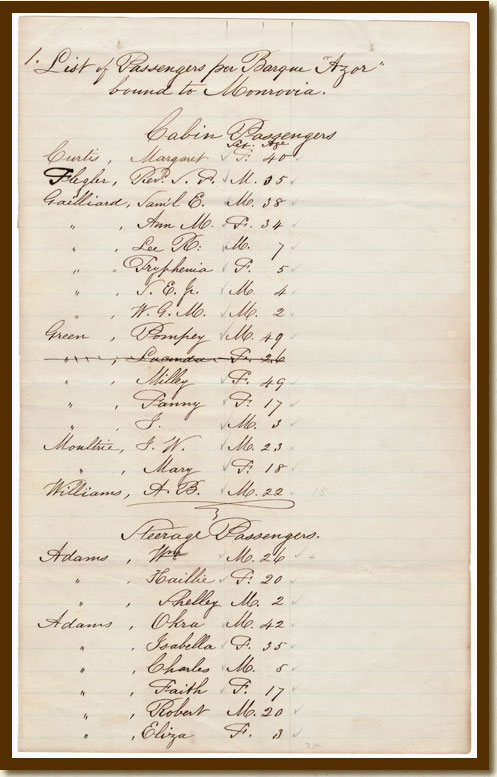 1. List of Passengers per Barque "Azor"
bound to Monrovia.
Cabin Passengers
Sex. Age
Curtis, Margaret F. 40
Flegler, Revd. S. F. M. 35
Gailliard, Sam'l E. M. 38
" , Ann M. F. 34
" , Lee R. M. 7
" , Tryphenia F. 5
" , S. E. Jr. M. 4
" , W. G. M. M. 2
Green , Pompey M. 49
" , Lucinda F. 26
" , Milley F. 49
" , Fanny F. 17
" , J. M. 3
Moultrie, J. W. M. 23
" , Mary F. 18
Williams, A. B. M. 22 15
Steerage Passengers.
Adams , Wm. M. 26
" , Haillie F. 20
" , Shelley M. 2
Adams , Okra M. 42
" , Isabella F. 35
" , Charles M. 5
" , Faith F. 17
" , Robert M. 20
" , Eliza F. 3